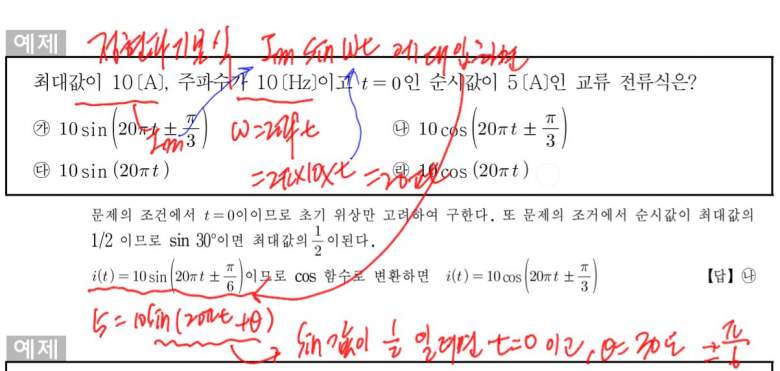 예제
정현파기본식 Im sin Wt 에 대입하면
최대값이 10〔A〕, 주파수가 10〔Hz〕이고 t = 0인 순시값이 5〔A〕인 교류 전류식은?
㉮ 10 sin(20πt ± π/3)
㉯ 10 cos(20πt ± π/3)
Im
W = 2πf t
㉰ 10 sin (20πt)
= 2π×10×t = 20πt
㉱ 10 cos (20πt)
문제의 조건에서 t = 0이이므로 초기 위상만 고려하여 구한다. 또 문제의 조거에서 순시값이 최대값의
1/2 이므로 sin 30°이면 최대값의 1/2이된다.
i(t) = 10 sin(20πt ± π/6)이므로 cos 함수로 변환하면 i(t) = 10 cos(20πt ± π/3) 【답】㉯
5 = 10sin(20πt + θ)
예제
sin 값이 1/2 일려면 t=0 이고, θ= 30도 ± π/6